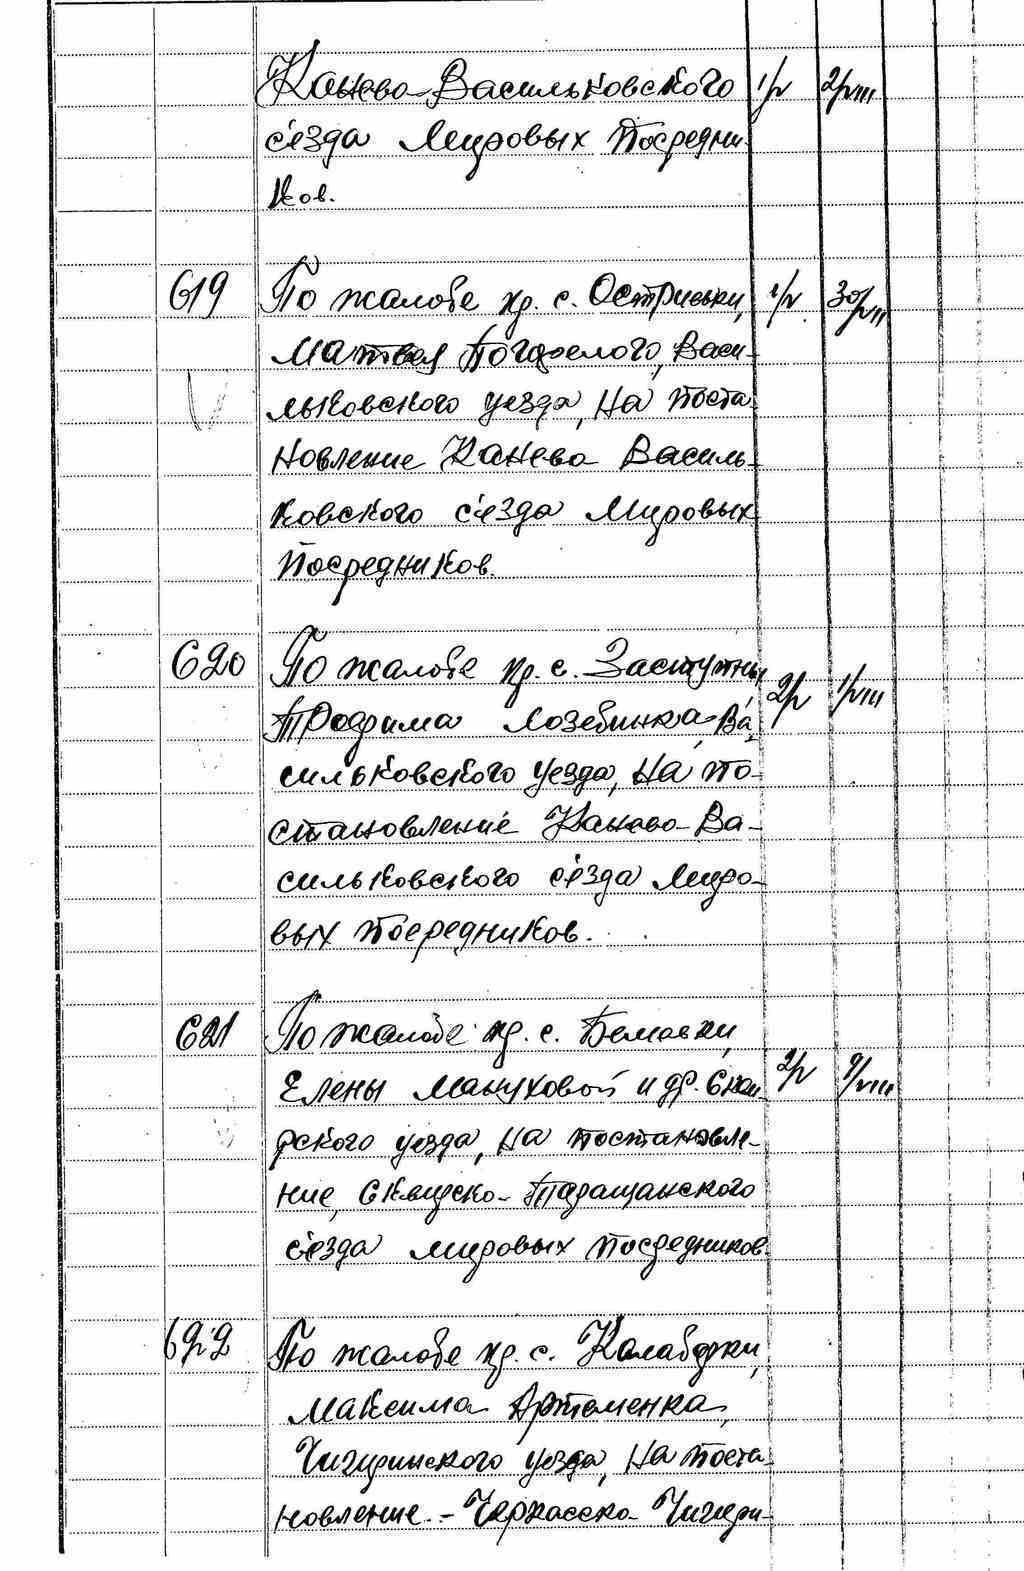 Канево-Васильковского 1/V 2/VIII
с'езда Мировых Посредни-
ков.
619 По жалобе кр. с. Острийки, 1/V. 30/VII
Матвея Погорелого, Васи-
льковского уезда, на поста-
новление Канево-Василь-
ковского с'езда Мировых
Посредников.
620 По жалобе кр. с.
Трофима Лозебинка, Ва- 2/V 1/VIII
сильковского уезда, на по-
становление Канево-Ва-
сильковского с'езда Миро-
вых посредников.
621 По жалобе кр. с.
Елены Мануховой и др.Скви- 2/V 9/VIII
рского уезда, на постановле-
ние, Сквирско-Таращанского
с'езда мировых посредников.
622 По жалобе кр. с. Калаборки,
Максима Артеменка,
Чигиринского уезда, на поста-
новление - Черкасско-Чигири-